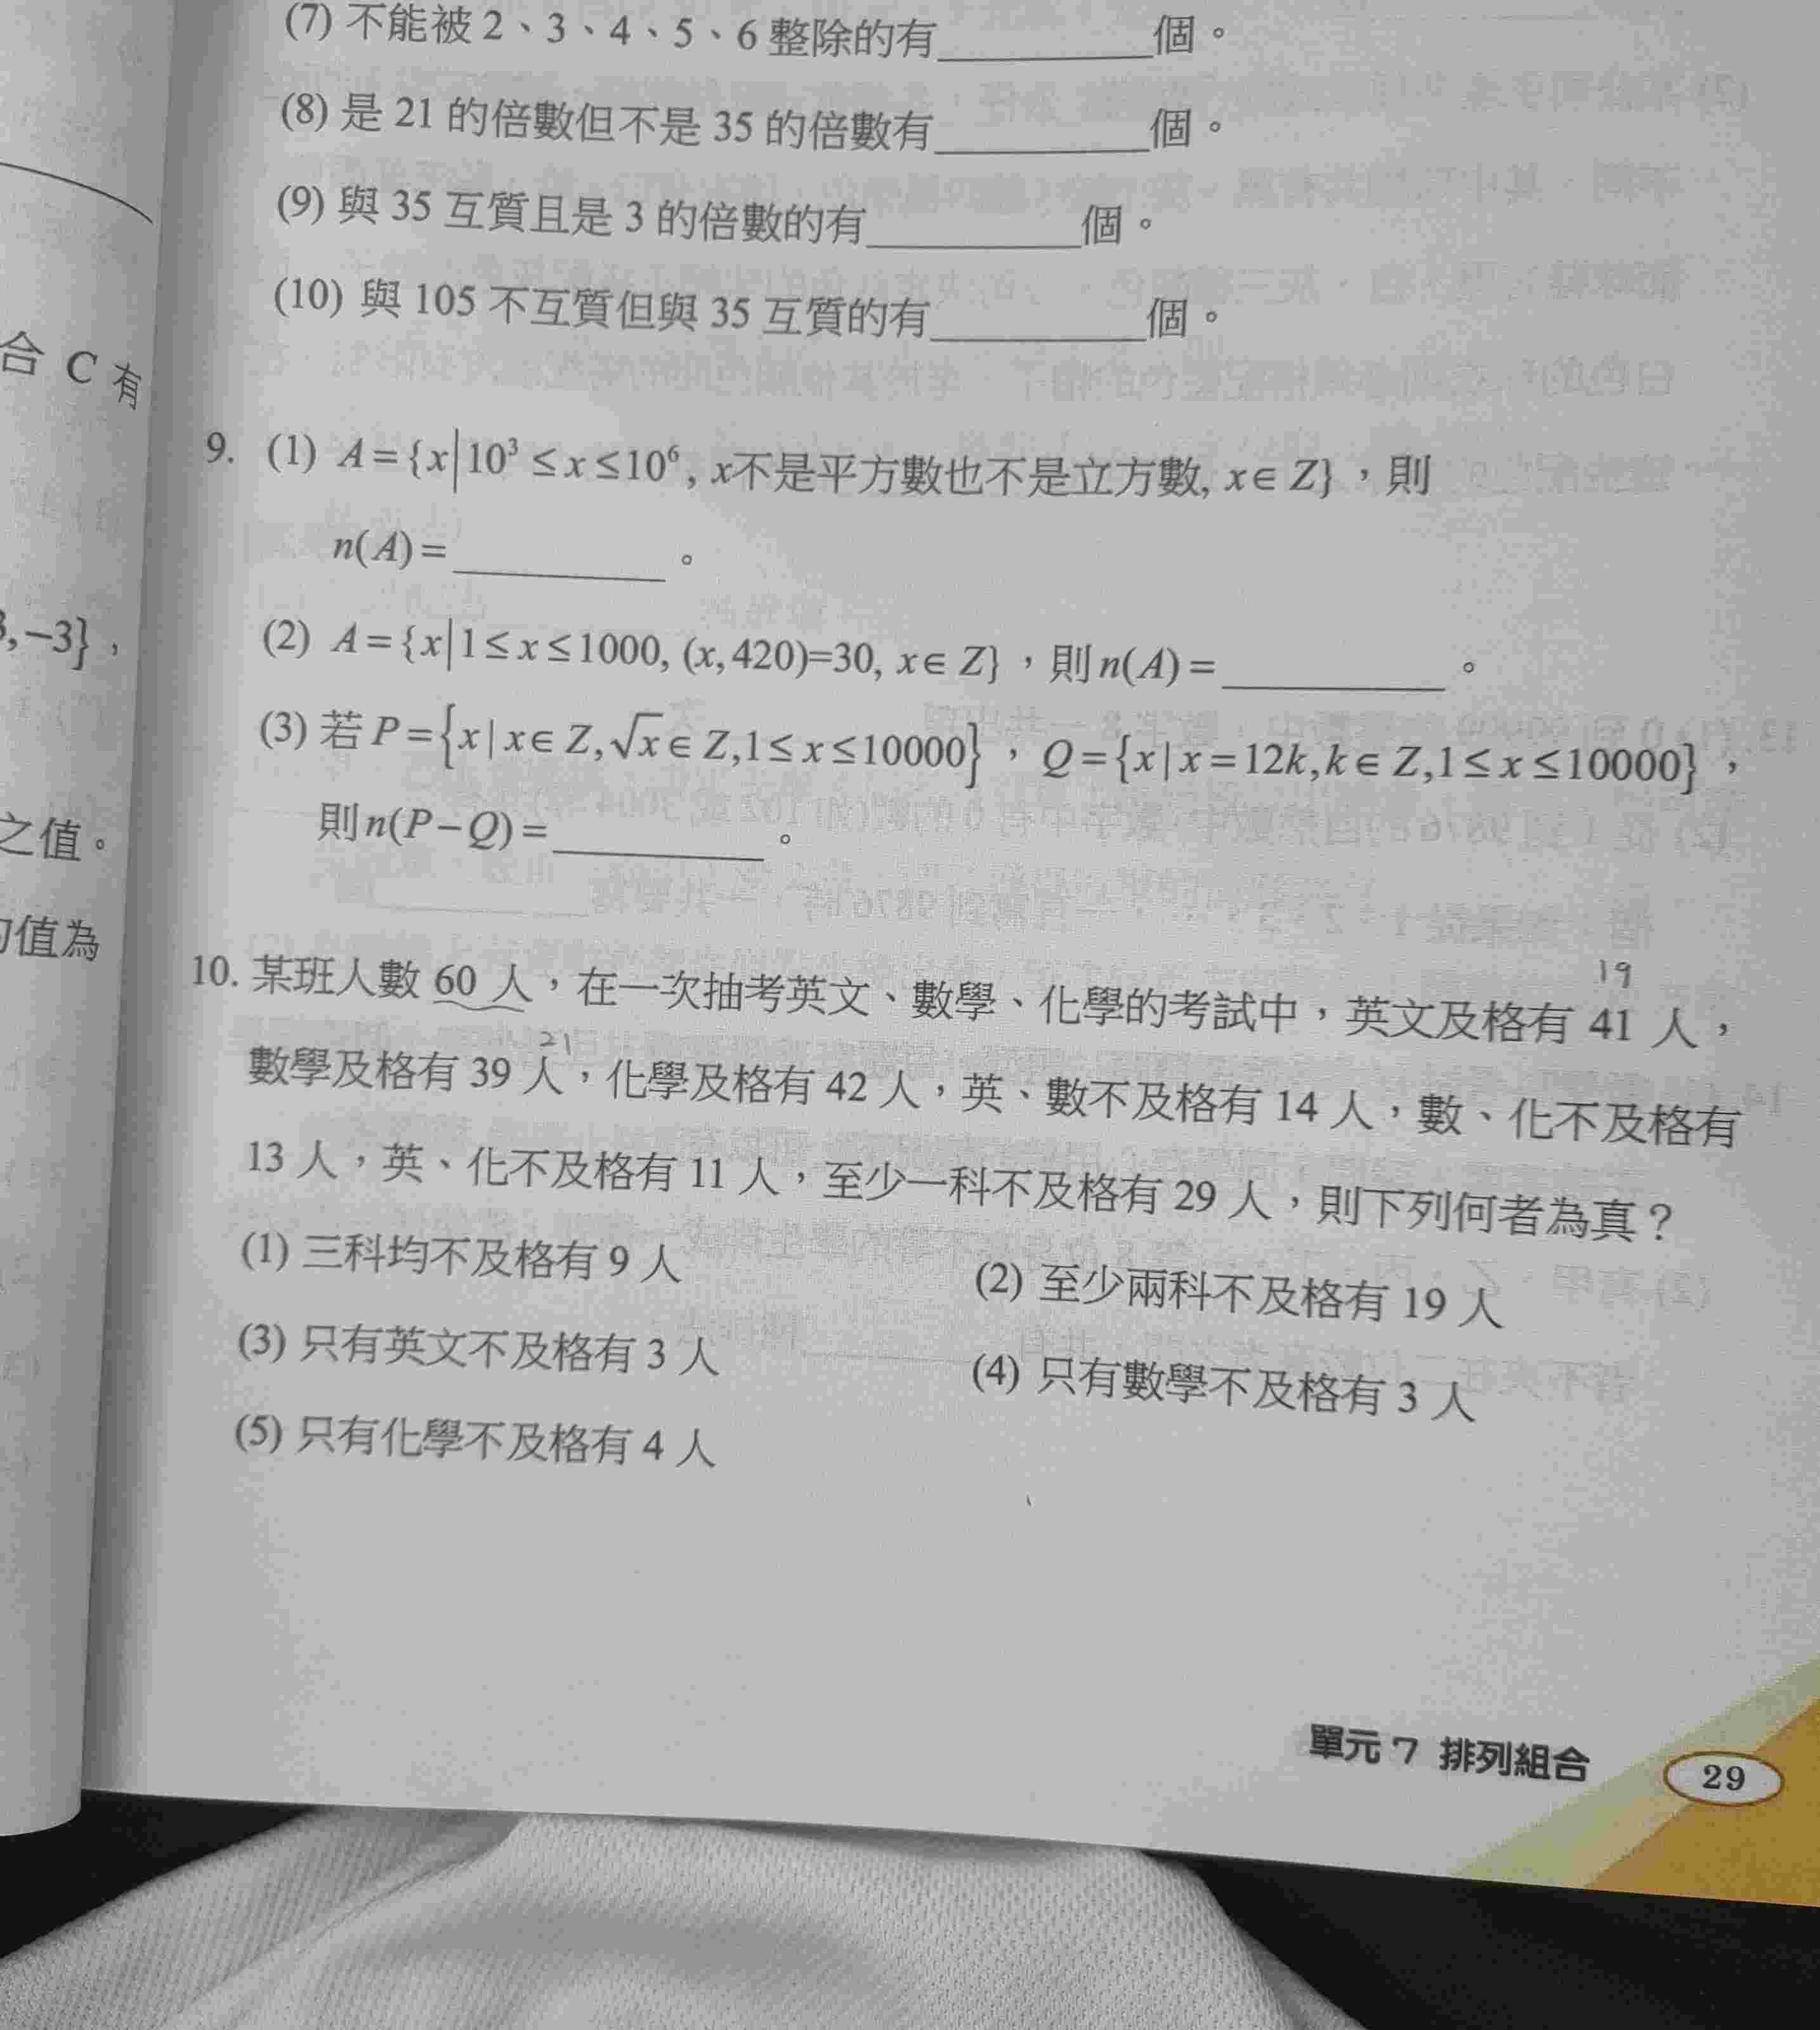 (7) 不能被 2、3、4、5、6 整除的有__________個。
(8) 是 21 的倍數但不是 35 的倍數有__________個。
(9) 與 35 互質且是 3 的倍數的有__________個。
(10) 與 105 不互質但與 35 互質的有__________個。
合 C 有
9. (1) A={x|10³≤x≤10⁶, x不是平方數也不是立方數, x∈Z},則
n(A)=__________。
,−3},
(2) A={x|1≤x≤1000, (x,420)=30, x∈Z},則n(A)=__________。
(3) 若P={x|x∈Z,√x∈Z,1≤x≤10000},Q={x|x=12k,k∈Z,1≤x≤10000},
之值。
則n(P−Q)=__________。
值為
19
10. 某班人數 60 人,在一次抽考英文、數學、化學的考試中,英文及格有 41 人,
21
數學及格有 39 人,化學及格有 42 人,英、數不及格有 14 人,數、化不及格有
13 人,英、化不及格有 11 人,至少一科不及格有 29 人,則下列何者為真?
(1) 三科均不及格有 9 人 (2) 至少兩科不及格有 19 人
(3) 只有英文不及格有 3 人 (4) 只有數學不及格有 3 人
(5) 只有化學不及格有 4 人
單元 7 排列組合 29